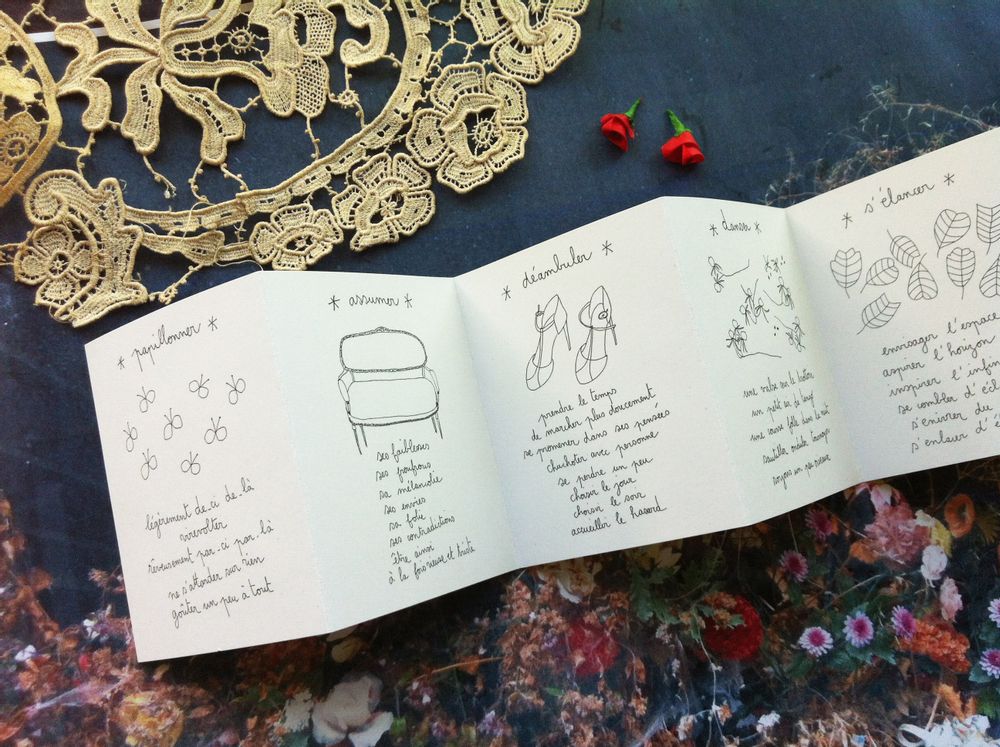 * papillonner *
légèrement de-ci de-là
virevolter
rêveusement par-ci par-là
ne s'attarder sur rien
goûter un peu à tout
* assumer *
ses faiblesses
ses froufrous
sa mélancolie
ses envies
sa folie
ses contradictions
être ainsi
à la fois rieuse et triste
* déambuler *
prendre le temps
de marcher plus doucement
se promener dans ses pensées
chuchoter avec personne
se perdre un peu
choisir le jour
choisir le soir
accueillir le hasard
* danser *
une valse sur le trottoir
un petit air de
une course folle dans la nuit
sautiller
soyons un peu
* s'élancer *
envisager l'espace
aspirer l'horizon
inspirer l'infin
se combler d'éc
s'enivrer du
s'enlacer d'é